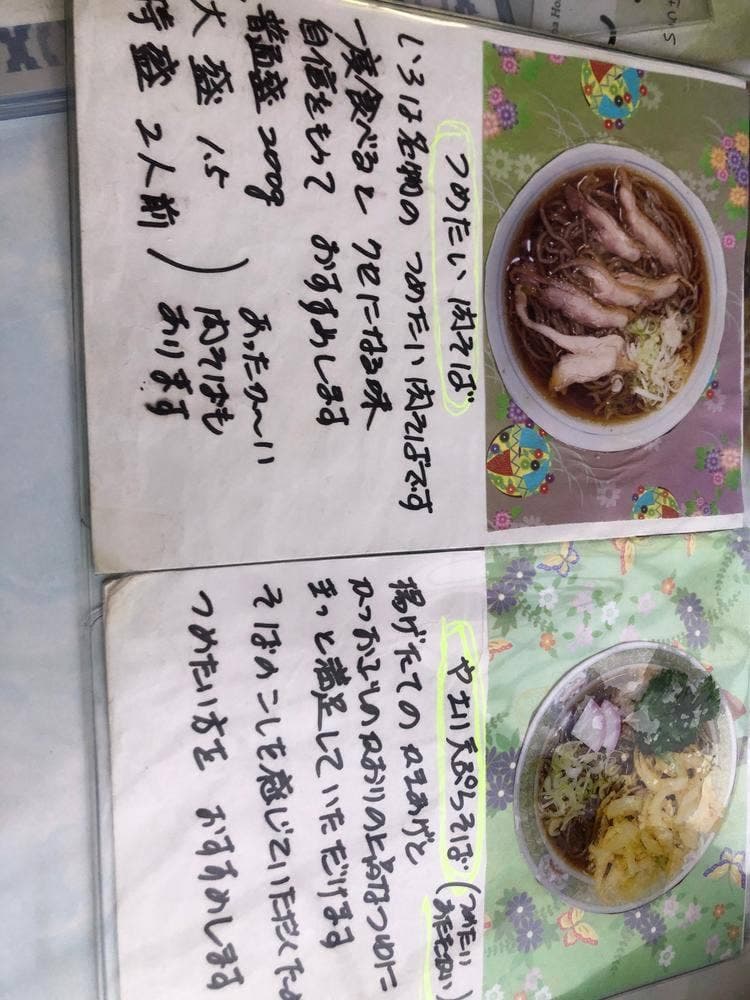 つめたい肉そば
いろは名物の つめたい肉そばです
一度食べると クセになる味
自信をもって おすすめします
普通盛 200g
大盛 1.5
特盛 2人前
あったか〜い
肉そばも
あります
やまい天ぷらそば (つめたい
あたたかい)
揚げたての かきあげと
かつおぶしのかおりの上品なつゆに
きっと満足していただけます
そばのこしを感じていただくため
つめたい方を おすすめします